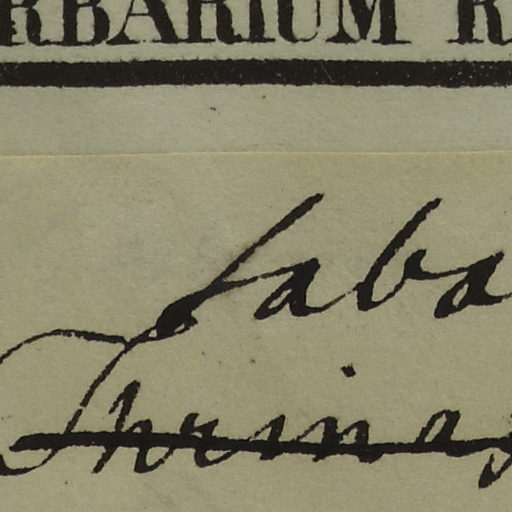 RBARIUM R
Saba
Thrinax